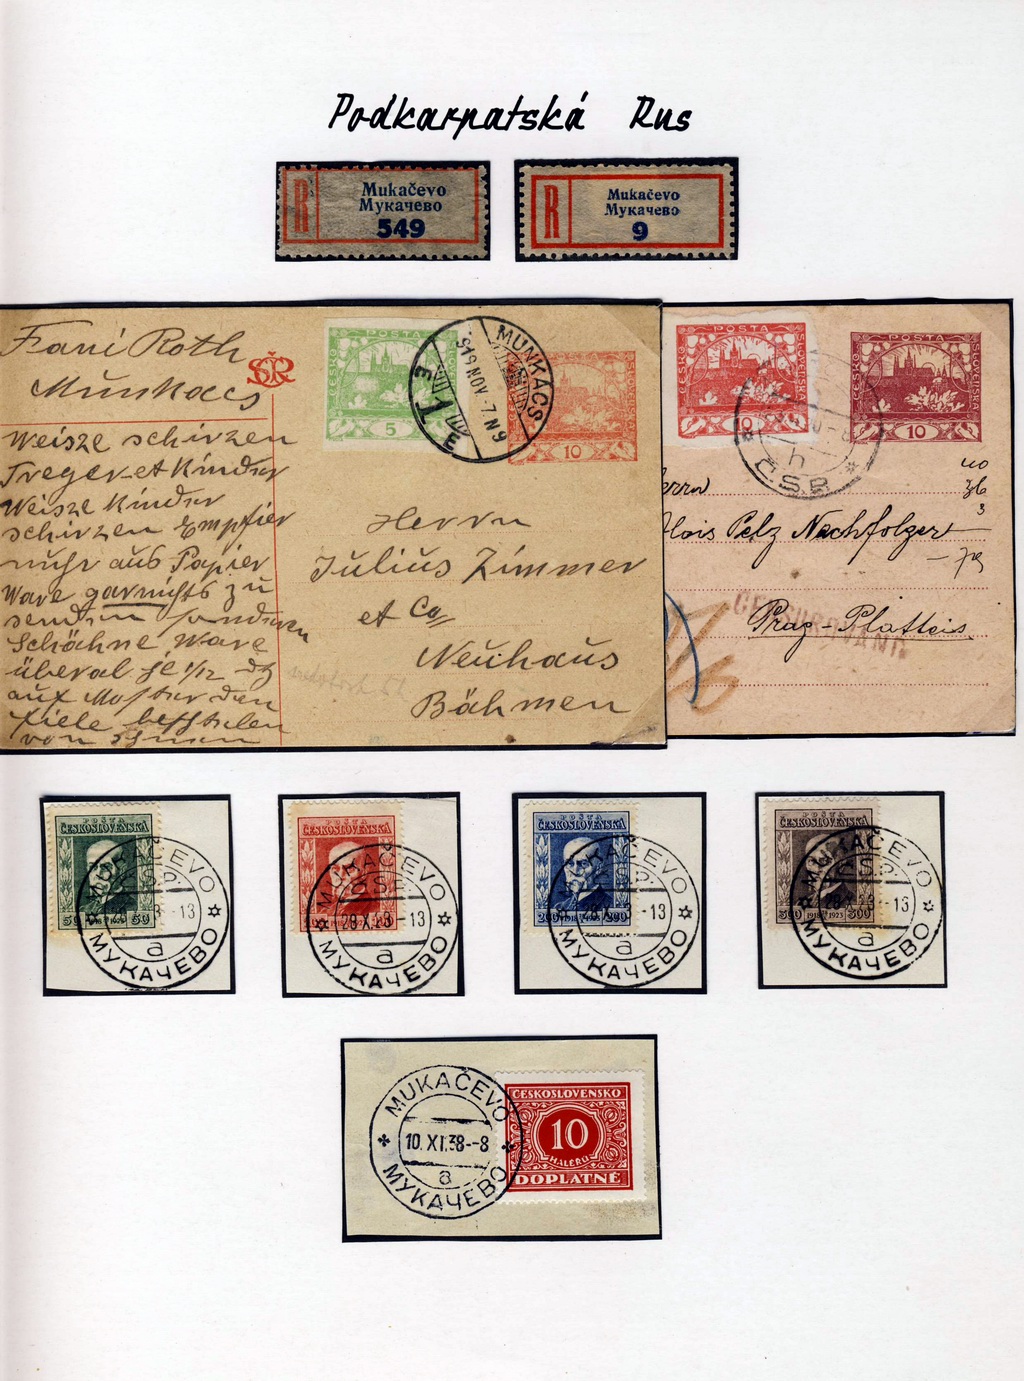 Podkarpatská Rus
R Mukačevo
Мукачево
549
R Mukačevo
Мукачево
9
Fani Roth
Munkacs
ČSR
Weisze schirzen
Treger et Kinder
Weisze Kinder
schirzen Empfier
aus Papier
Ware garnichts zu
Schöhne Ware
überal
auf den
von
POSTA
ČESKO SLOVENSKÁ
5
10
MUNKÁCS
919 NOV -7. N 9
1 E
Herrn
Julius Zimmer
et Co
Neuhaus
Böhmen
POSTA
ČESKO SLOVENSKÁ
10
10
h
Č.S.R.
36
3
Alois Pelz Nachfolger
Prag-Platteis
CENSUROVÁNO
POŠTA
ČESKOSLOVENSKÁ
50 1918 1923 50
MUKAČEVO
13
a
МУКАЧЕВО
POŠTA
ČESKOSLOVENSKÁ
MUKAČEVO
28.X.23-13
a
МУКАЧЕВО
POŠTA
ČESKOSLOVENSKÁ
200 1918 1923 200
MUKAČEVO
28.X.23-13
a
МУКАЧЕВО
POŠTA
ČESKOSLOVENSKÁ
300 1918 1923 300
MUKAČEVO
28.X.23-13
a
МУКАЧЕВО
MUKAČEVO
10.XI.38--8
a
МУКАЧЕВО
ČESKOSLOVENSKO
10
HALÉŘŮ
DOPLATNÉ